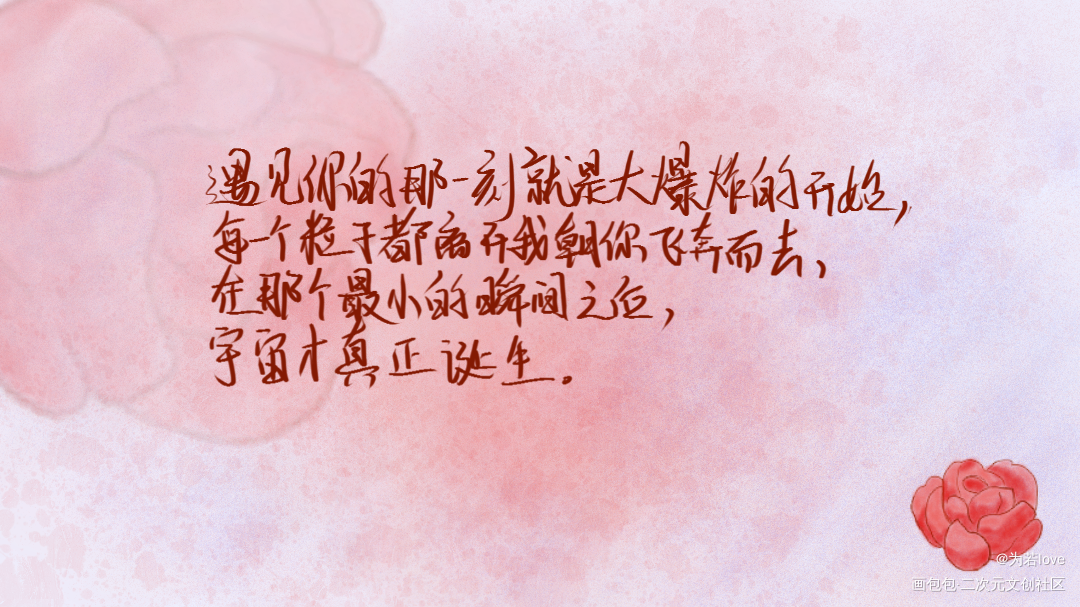 遇见你的那一刻就是大爆炸的开始，
每一个粒子都离开我朝你飞奔而去，
在那个最小的瞬间之后，
宇宙才真正诞生。
@为若love
画包包·二次元文创社区